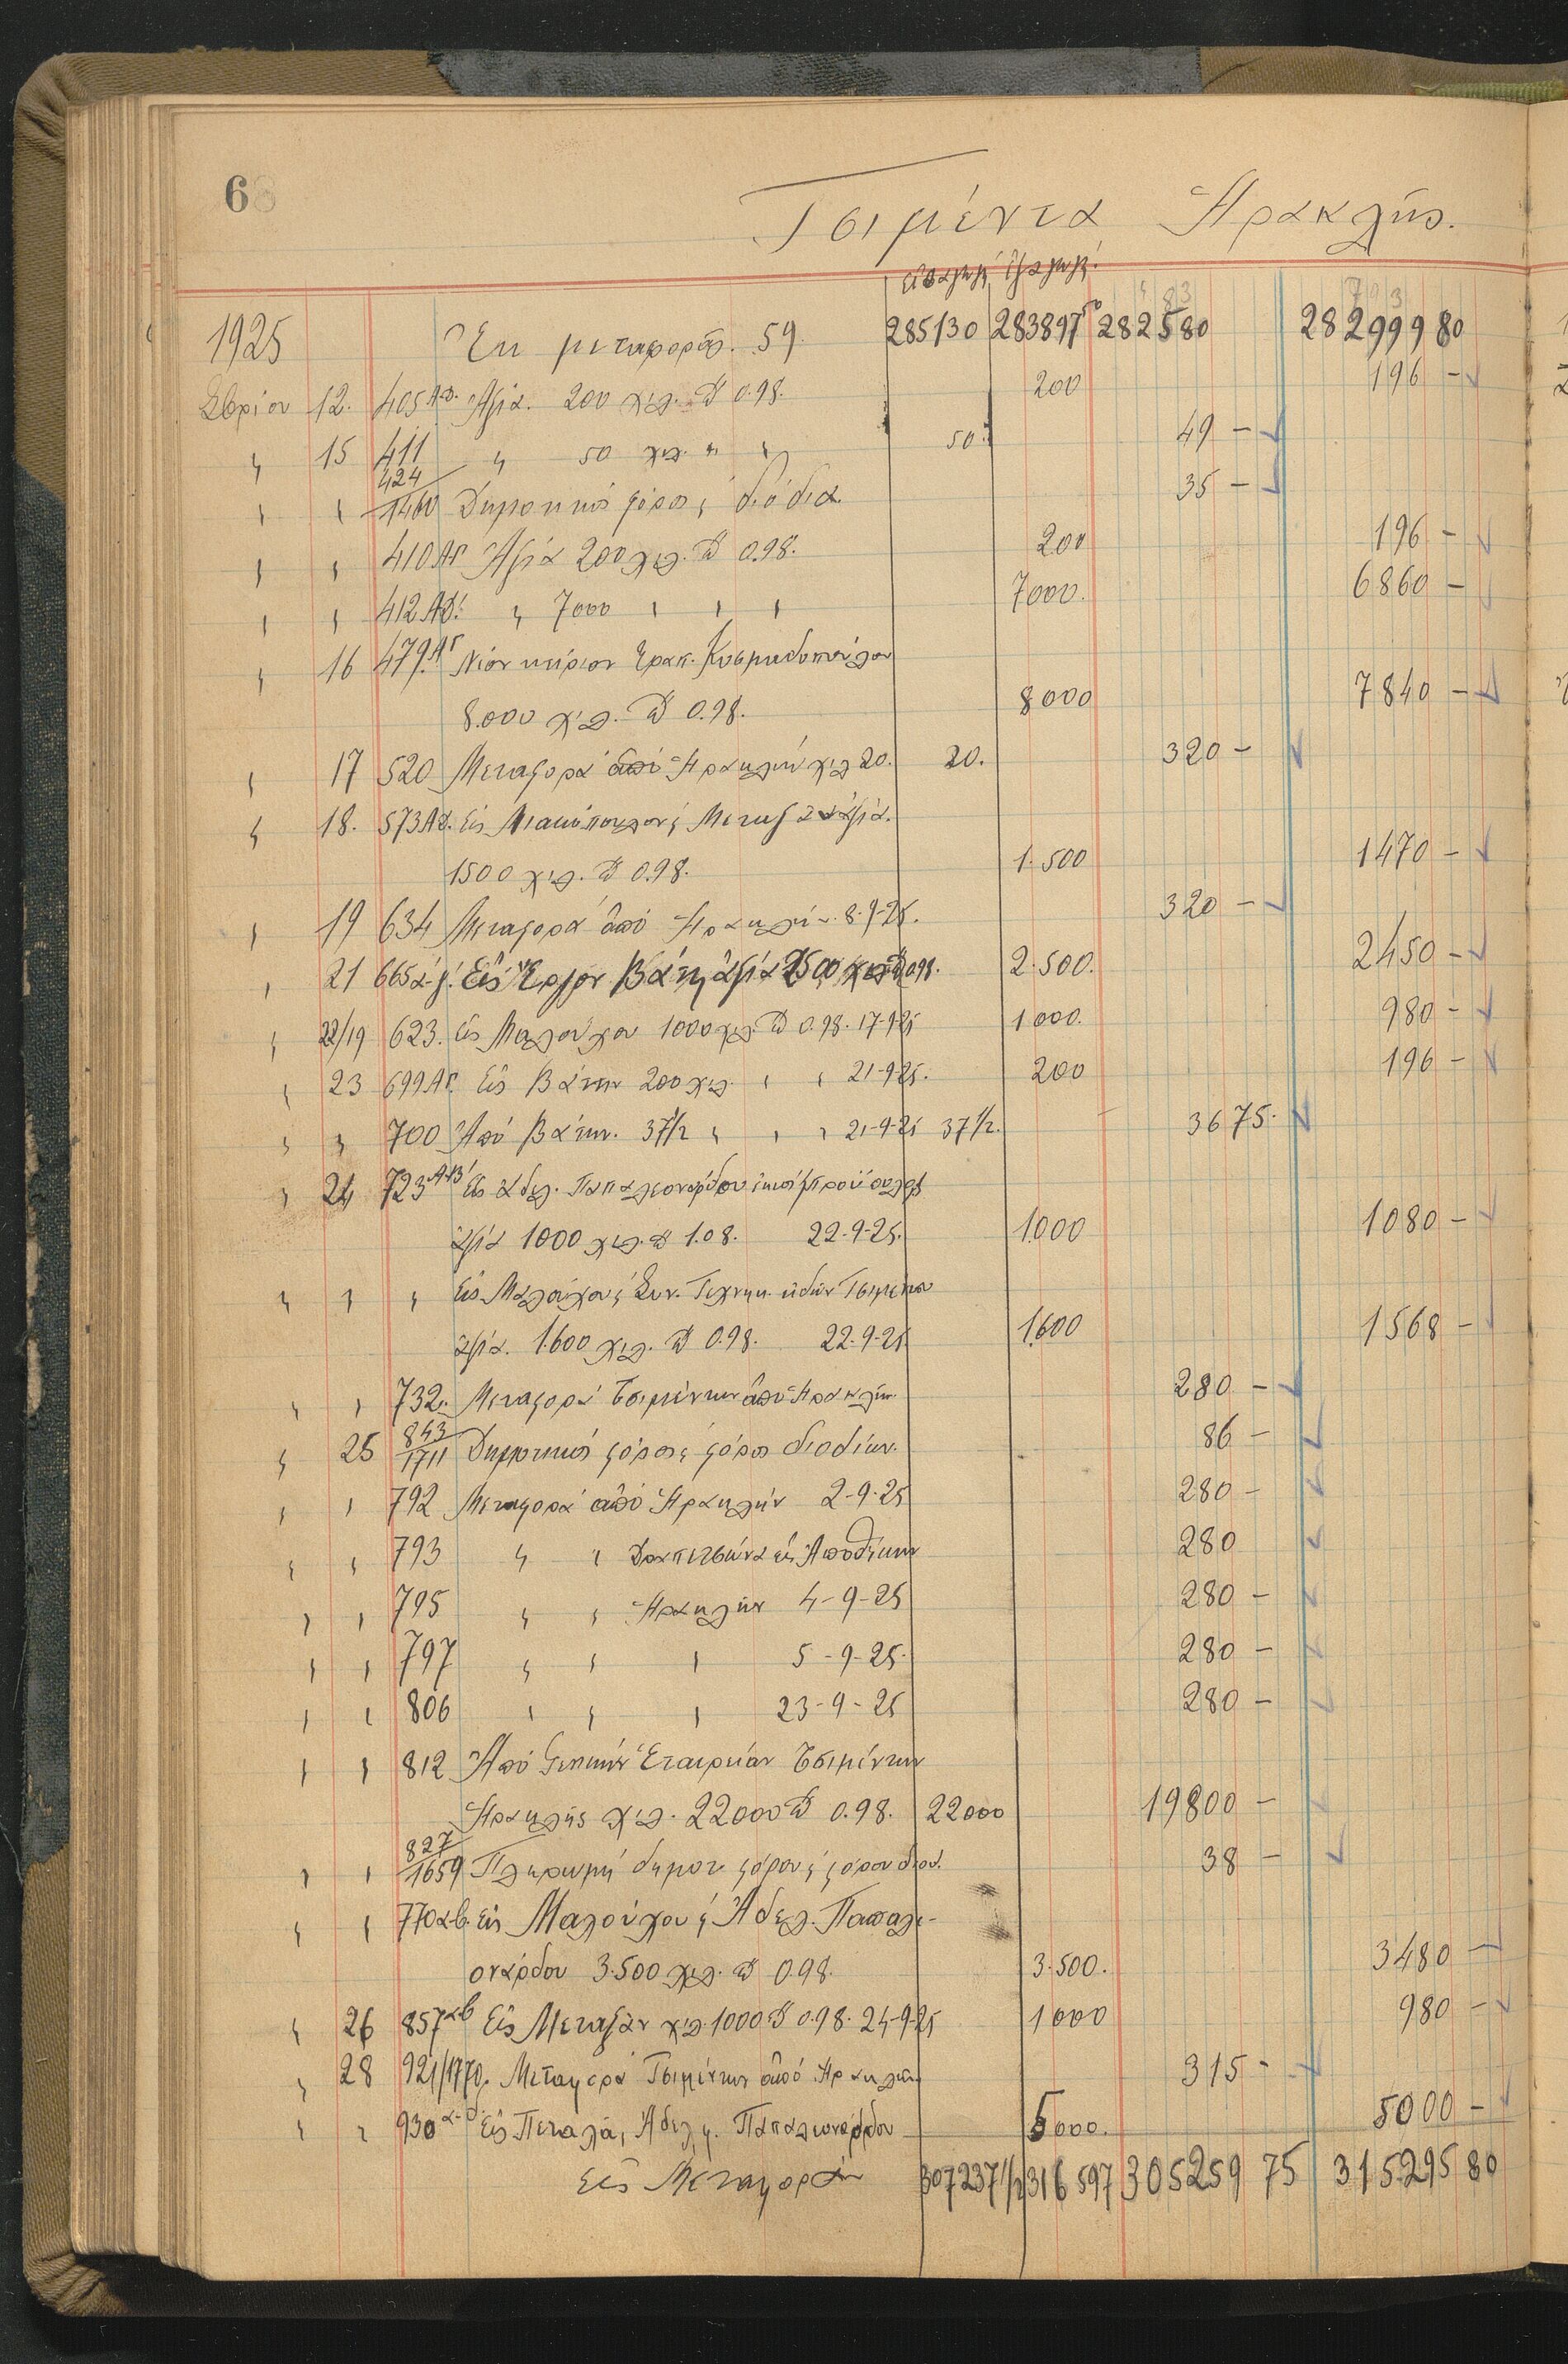 68
Τσιμέντα Ηρακλής.
εἰσαγωγή ἐξαγωγή.
1925 Ἐκ μεταφορᾶς. 59 285130 283897 50 282580 282999 80
7βρίου 12. 405 Αδ. Ἀξία. 200 χιλ. @ 0.98. 200 196 -
" 15 411 " 50 χιλ. " " 50. 49 -
" " 424/1460 Δημοτικὸς φόρος & διόδια. 35 -
" " 410 ΑΓ Ἀξία 200 χιλ. @ 0.98. 200 196 -
" " 412 Αδ. " 7000 " " " 7000. 6860 -
" 16 479 ΑΓ Νέον κτίριον Τραπ. Κοσμαδοπούλου
8.000 χιλ. @ 0.98. 8000 7840 -
" 17 520 Μεταφορὰ ἀπὸ Ἡρακλῆν χιλ 20. 20. 320 -
" 18. 573 Αδ. Εἰς & Μεταξᾶ ἀξία.
1500 χιλ. @ 0.98. 1.500 1470 -
" 19 634 Μεταφορὰ ἀπὸ Ἡρακλῆν. 8-9-25. 320 -
" 21 665 α-γ. Εἰς Ἔργον Βάκη ἀξία 2500 χιλ @ 098. 2.500. 2450 -
" 22/19 623. Εἰς Μαλούχου 1000 χιλ. @ 0.98. 17-9-25 1000. 980 -
" 23 699 ΑΓ. Εἰς Βάκην 200 χιλ. " " 21-9-25. 200 196 -
" " 700 Ἀπὸ Βάκην. 37 1/2 " " " 21-9-25 37 1/2. 36 75.
" 24 723 Α-Β Εἰς ἀδελ. Παπαλεονάρδου
ἀξία 1000 χιλ. @ 1.08. 22-9-25. 1000 1080 -
" " " Εἰς Μαλούχου & Συν. Τεχνικ. εἰδῶν Τσιμέντου
ἀξία. 1.600 χιλ. @ 0.98. 22-9-25 1.600 1568 -
" " 732. Μεταφορὰ Τσιμέντων ἀπὸ Ἡρακλῆν. 280 -
" 25 843/1711 Δημοτικὸς φόρος & φόρος διοδίων. 86 -
" " 792 Μεταφορὰ ἀπὸ Ἡρακλῆν 2-9-25 280 -
" " 793 " " εἰς Ἀποθήκην 280
" " 795 " " Ἡρακλῆν 4-9-25 280 -
" " 797 " " " 5-9-25. 280 -
" " 806 " " " 23-9-25 280 -
" " 812 Ἀπὸ Γενικὴν Ἑταιρείαν Τσιμέντων
Ἡρακλῆς χιλ. 22000 @ 0.98. 22000 19800 -
" " 827/1659 Πληρωμὴ δημοτ φόρου & φόρου διοδ. 38 -
" " 770 α-β. Εἰς Μαλούχου & Ἀδελ. Παπαλε-
ονάρδου 3.500 χιλ. @ 0.98. 3.500. 3480 -
" 26 857 αβ Εἰς Μεταξᾶν χιλ. 1000 @ 0.98. 24-9-25 1000 980 -
" 28 921/1770. Μεταφορὰ Τσιμέντων ἀπὸ Ἡρακλῆν 315 -
" " 930 α-δ. Εἰς Πεταλᾶ, Ἀδελφ. Παπαλεονάρδου 5000. 5000 -
Εἰς Μεταφοράν 307237 1/2 316597 305259 75 315295 80